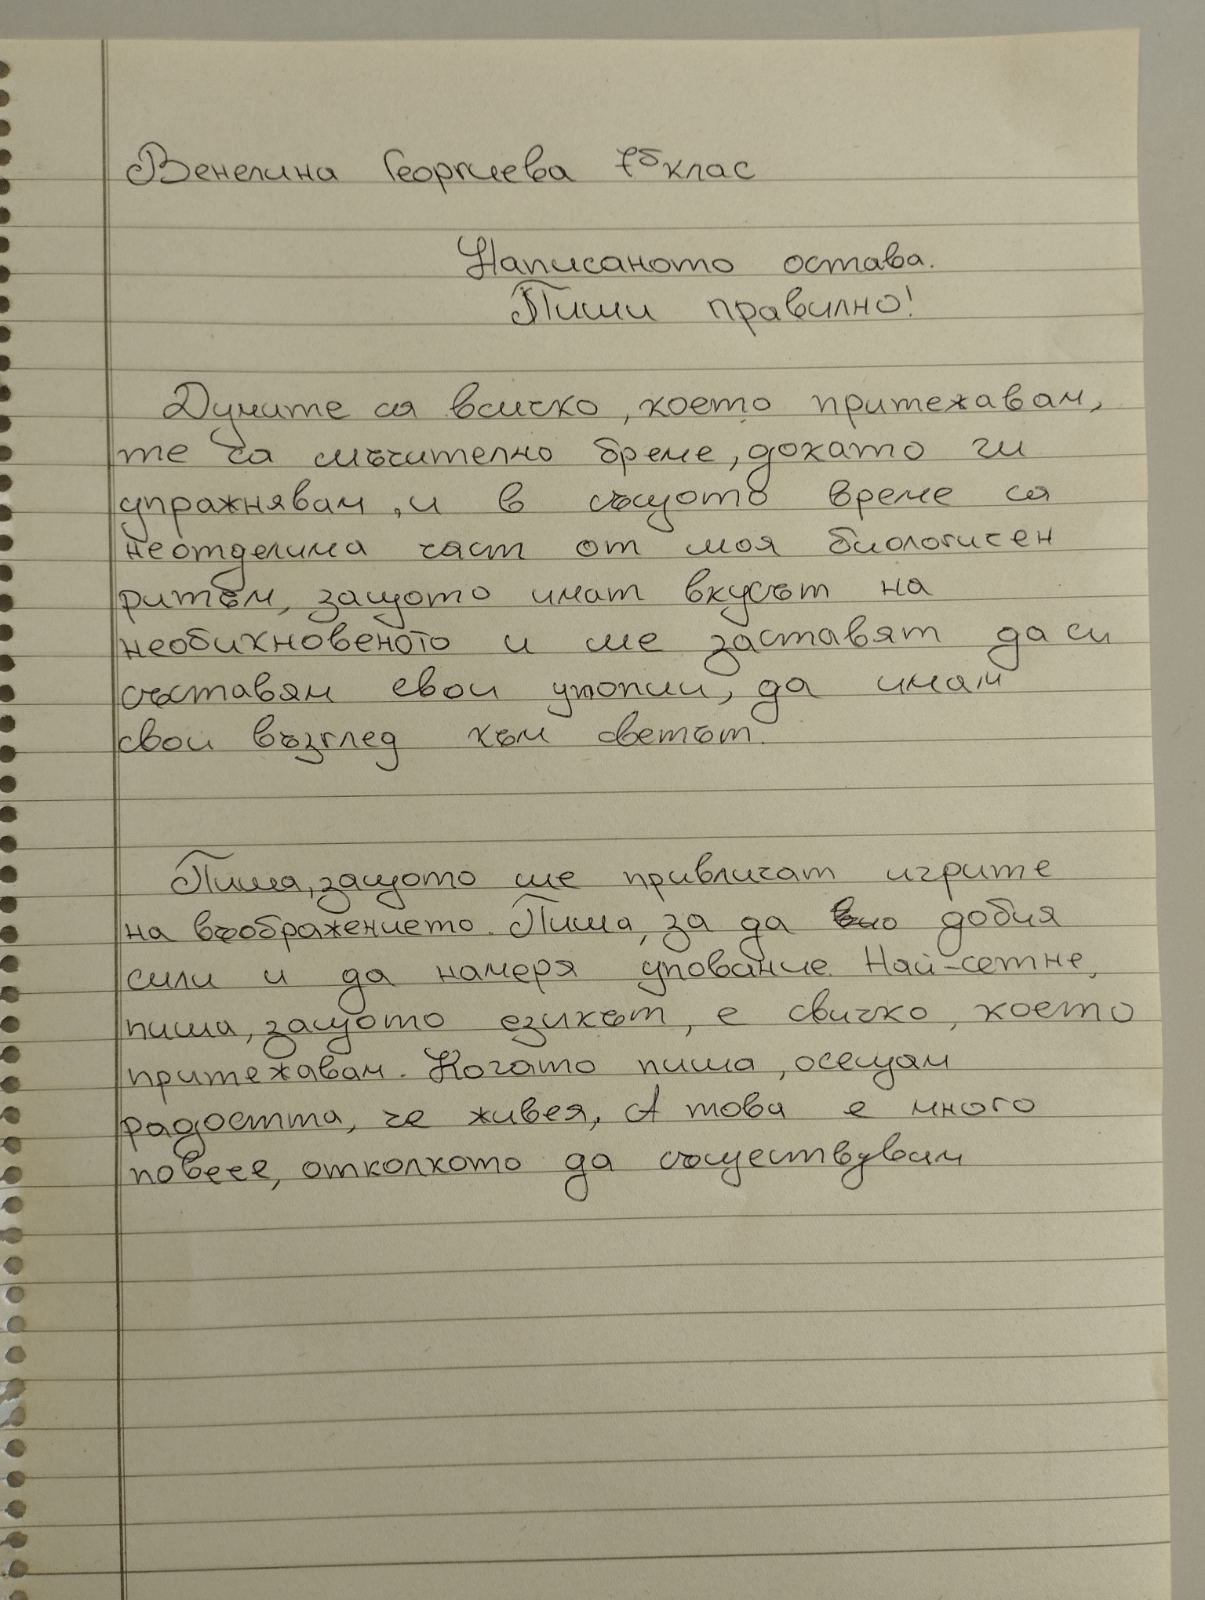 Венелина Георгиева 7б клас
Написаното остава.
Пиши правилно!
Думите ся всичко, което притежавам,
те са мъчително бреме, докато ги
упражнявам, и в същото време ся
неотделима част от моя биологичен
ритъм, защото имат вкусът на
необикновеното и ме заставят да си
съставям свои утопии, да имам
свои възглед към светът.
Пиша, защото ме привличат игрите
на въображението. Пиша, за да добия
сили и да намеря упование. Най-сетне,
пиша, защото езикът, е свичко, което
притежавам. Когато пиша, осещам
радостта, че живея, А това е много
повече, отколкото да съществувам